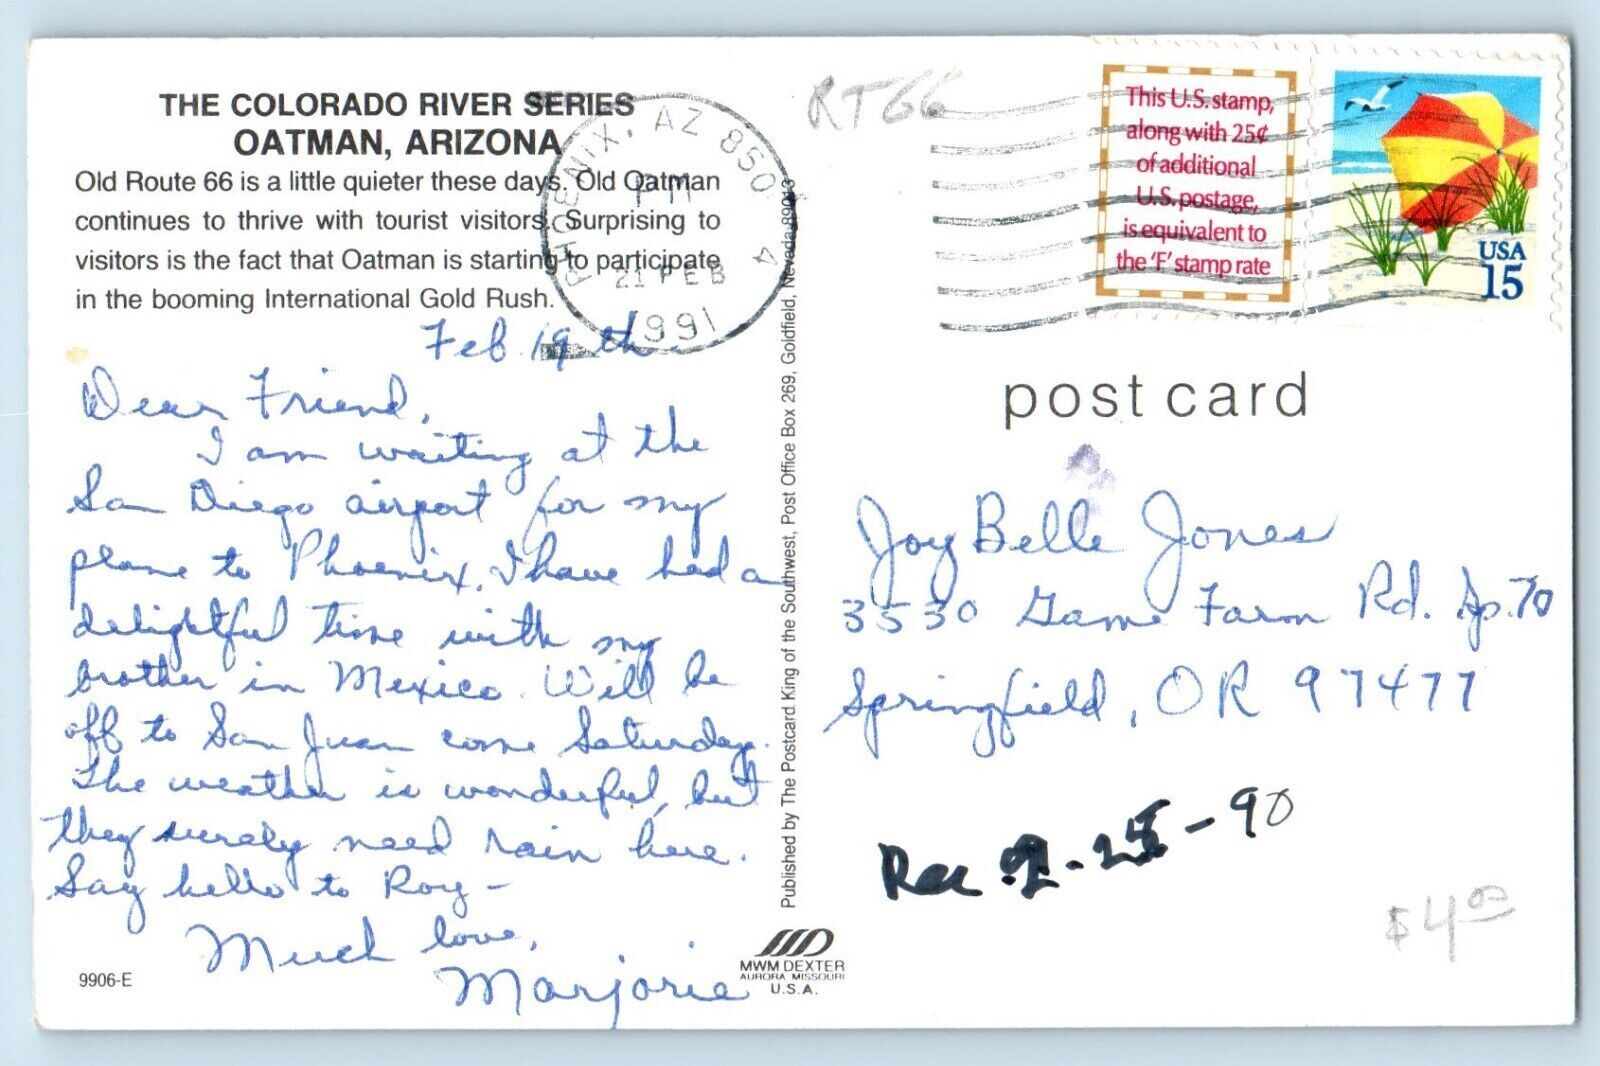 THE COLORADO RIVER SERIES
OATMAN, ARIZONA
Old Route 66 is a little quieter these days. Old Oatman
continues to thrive with tourist visitors. Surprising to
visitors is the fact that Oatman is starting to participate
in the booming International Gold Rush.
Feb. 19th
Dear Friend,
I am waiting at the
San Diego airport for my
plane to Phoenix. I have had a
delightful time with my
brother in Mexico. Will be
off to San Juan come Saturday.
The weather is wonderful, but
they surely need rain here.
Say hello to Roy –
Much love,
Marjorie
9906-E
Published by The Postcard King of the Southwest, Post Office Box 269, Goldfield, Nevada 89013
MWM DEXTER
AURORA MISSOURI
U.S.A.
PHOENIX, AZ 850
PM
21 FEB
1991
4
RT66
This U.S. stamp,
along with 25¢
of additional
U.S. postage,
is equivalent to
the 'F' stamp rate
USA
15
post card
Joy Belle Jones
3530 Game Farm Rd. Sp. 70
Springfield, OR 97477
Rec 2-25-90
$4.00